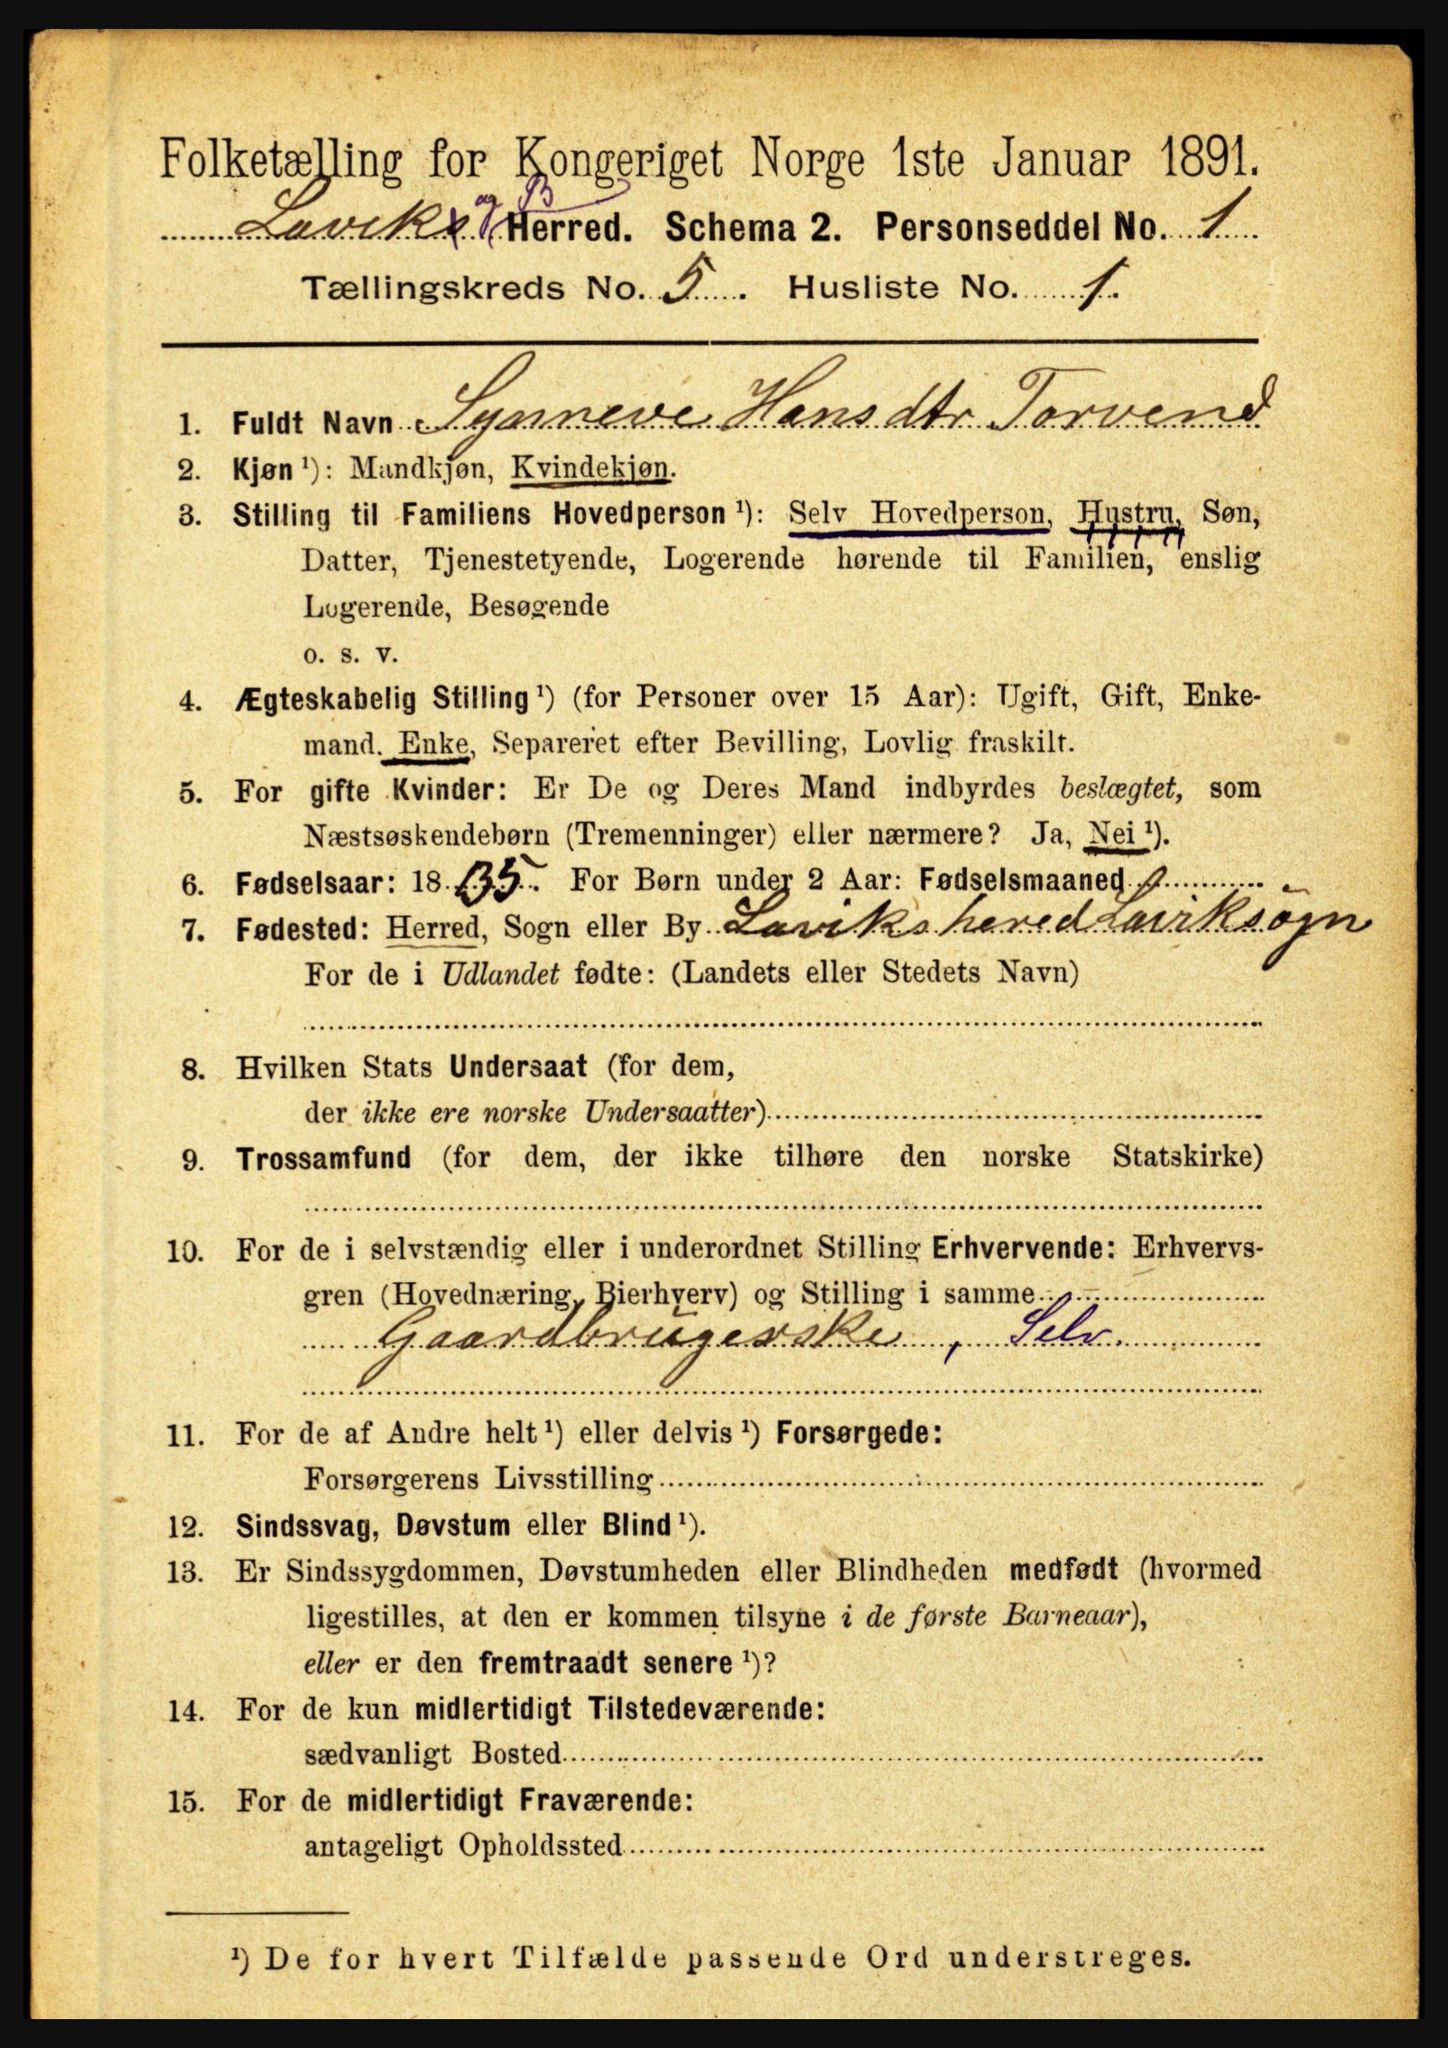 Folketælling for Kongeriget Norge 1ste Januar 1891.
Laviks og B Herred. Schema 2. Personseddel No. 1
Tællingskreds No. 5. Husliste No. 1.
1. Fuldt Navn Synneve Hansdtr Torvend
2. Kjøn ¹): Mandkjøn, Kvindekjøn.
3. Stilling til Familiens Hovedperson ¹): Selv Hovedperson, Hustru, Søn,
Datter, Tjenestetyende, Logerende hørende til Familien, enslig
Logerende, Besøgende
o. s. v.
4. Ægteskabelig Stilling ¹) (for Personer over 15 Aar): Ugift, Gift, Enke-
mand. Enke, Separeret efter Bevilling, Lovlig fraskilt.
5. For gifte Kvinder: Er De og Deres Mand indbyrdes beslægtet, som
Næstsøskendebørn (Tremenninger) eller nærmere? Ja, Nei ¹).
6. Fødselsaar: 1835. For Børn under 2 Aar: Fødselsmaaned
7. Fødested: Herred, Sogn eller By Laviks hered Laviksogn
For de i Udlandet fødte: (Landets eller Stedets Navn)
8. Hvilken Stats Undersaat (for dem,
der ikke ere norske Undersaatter)
9. Trossamfund (for dem, der ikke tilhøre den norske Statskirke)
10. For de i selvstændig eller i underordnet Stilling Erhvervende: Erhvervs-
gren (Hovednæring, Bierhverv) og Stilling i samme
Gaardbrugerske, Selv.
11. For de af Andre helt ¹) eller delvis ¹) Forsørgede:
Forsørgerens Livsstilling
12. Sindssvag, Døvstum eller Blind ¹).
13. Er Sindssygdommen, Døvstumheden eller Blindheden medfødt (hvormed
ligestilles, at den er kommen tilsyne i de første Barneaar),
eller er den fremtraadt senere ¹)?
14. For de kun midlertidigt Tilstedeværende:
sædvanligt Bosted
15. For de midlertidigt Fraværende:
antageligt Opholdssted
¹) De for hvert Tilfælde passende Ord understreges.